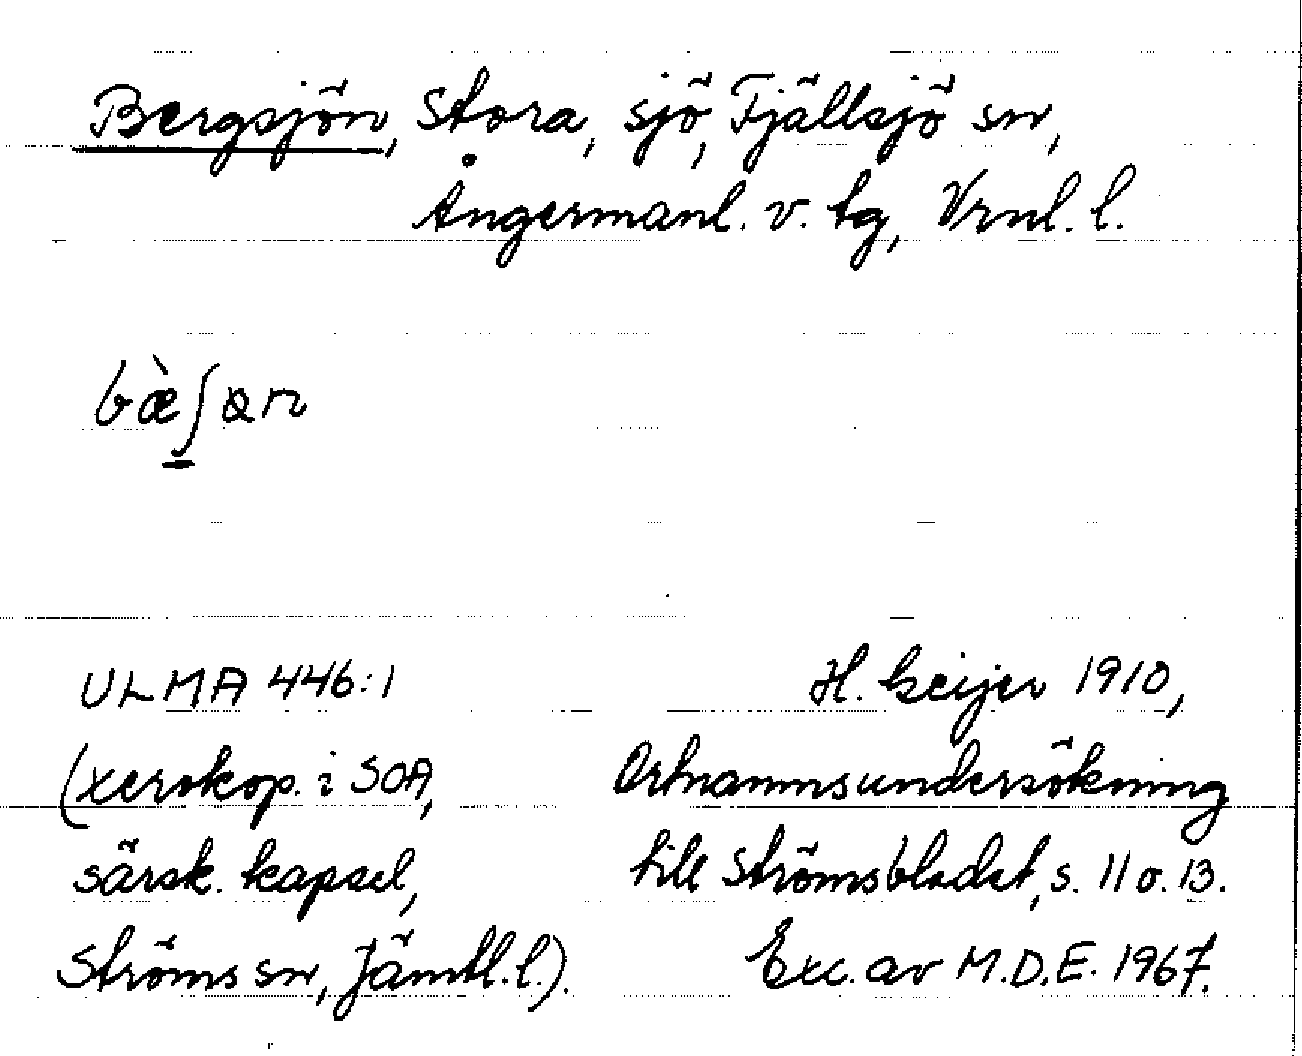 Bergsjön, Stora, sjö, Fjällsjö sn,
Ångermanl. v. tg, Vrnl. l.
bæ̀ʃαn
ULMA 446:1
(xerokop. i SOA,
särsk. kapsel,
Ströms sn, Jämtl. l.).
H. Geijer 1910,
Ortnamnsundersökning
till Strömsbladet, s. 11 o. 13.
Exc. av M.D.E. 1967.